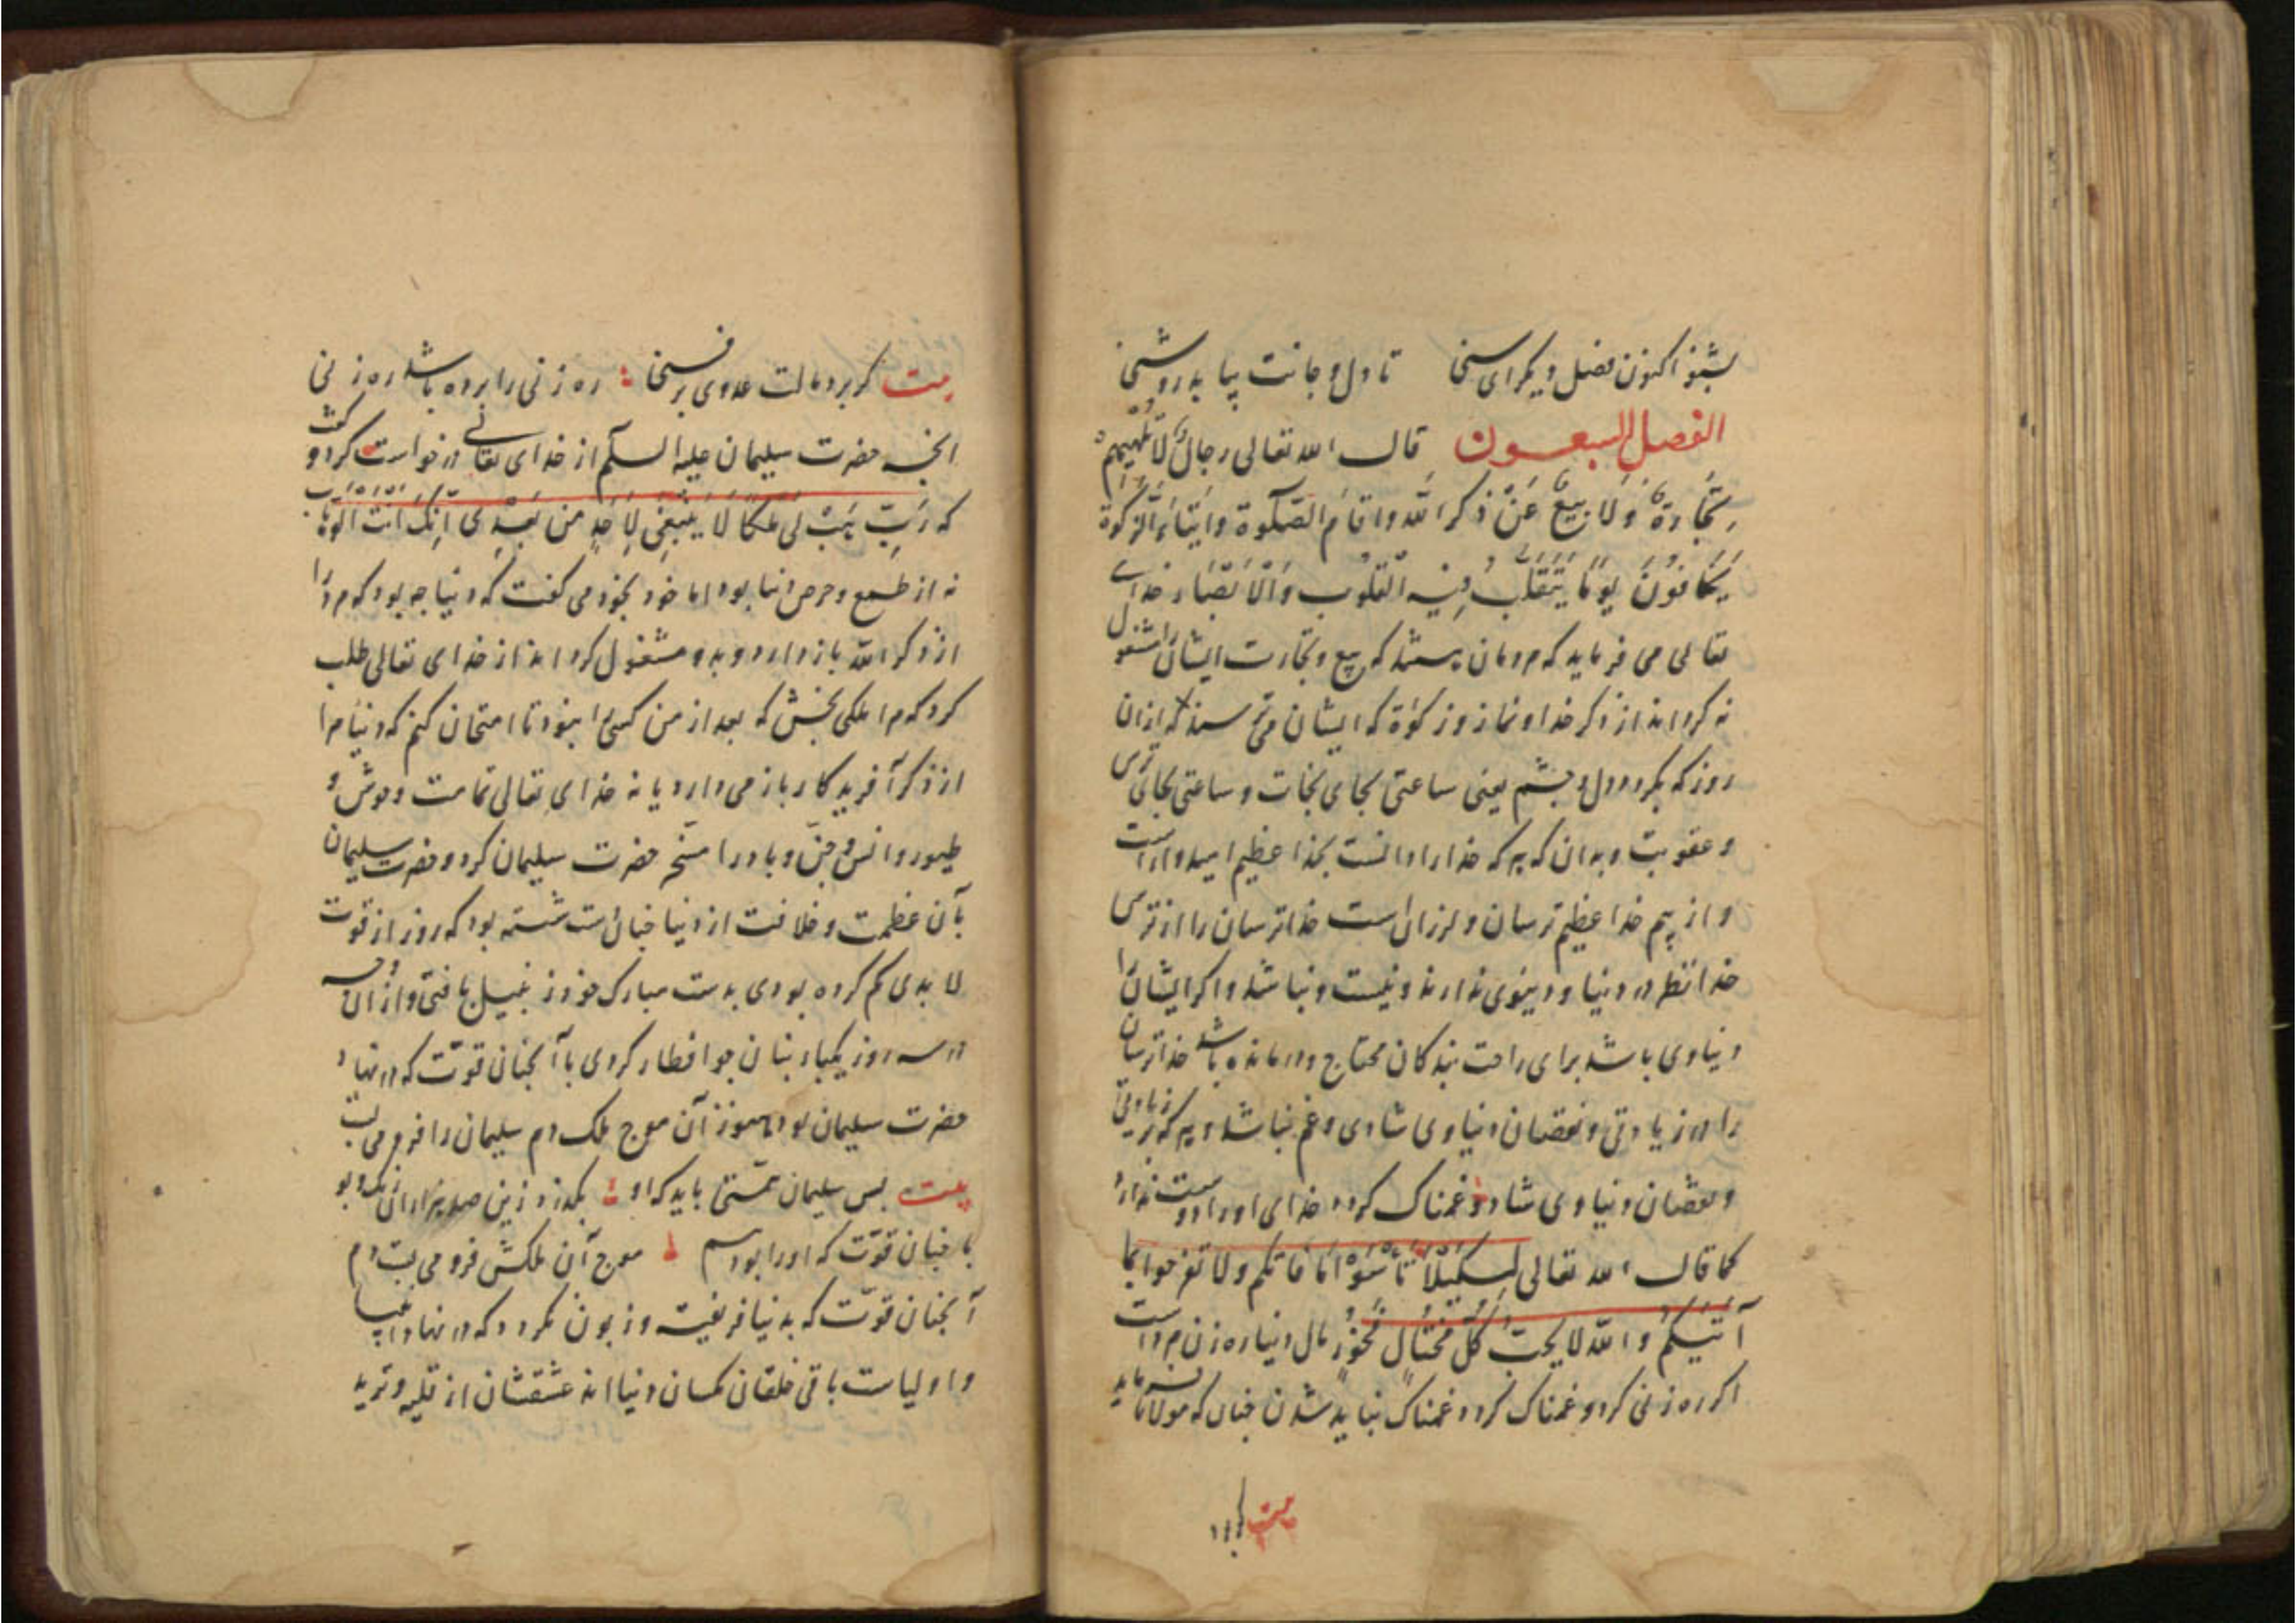 بشنو اکنون فصل دیکر ای سنی تا دل و جانت بیابد روشنی
الفصل السبعون قال الله تعالی رجال لا تلهیهم
تجارة ولا بیع عن ذکر الله واقام الصلوة وایتاء الزکوة
یخافون یوما یتقلب فیه القلوب والابصار خدای
تعالی می فرماید که مردمان هستند که بیع و تجارت ایشان را مشغول
نه کرداند از ذکر خدا و نماز و زکوة که ایشان می ترسند که ازان
روز که بکردد دل و چشم یعنی ساعتی بجای نجات و ساعتی بجای ترس
و عقوبت و بدان که هر که خدا را دانست بخدا عظیم امیدوار است
و از بیم خدا عظیم ترسان و لرزان است خداترسان را از ترس
خدا نظر در دنیا و دنیوی ندارند و نیست و نباشد و اکر ایشان را
دنیاوی باشد برای راحت بندکان محتاج و درمانده باشد خداترسان
را در زیادتی و نقصان دنیاوی شادی و غم نباشد و هر که بزیادتی
و نقصان دنیاوی شاد و غمناک کردد خدای او را دوست ندارد
کما قال الله تعالی لکیلا تأسوا ما فاتکم ولا تفرحوا بما
آتیکم والله لا یحب کل مختال فخور مال دنیا ره زن مرد است
اکر ره زنی کردد غمناک نباید شدن چنان که مولانا فرماید
بیت کر برد
بیت کر برد مالت عدوی بر فنی ره زنی را برده باشد ره زنی
انچه حضرت سلیمان علیه السلام از خدای تعالی درخواست کرد و کفت
که رب هب لی ملکا لا ینبغی لاحد من بعدی انک انت الوهاب
نه از طمع و حرص دنیا بود اما خود بخود می کفت که دنیا چه بود که مرد را
از ذکر الله باز دارد و بدو مشغول کرداند از خدای تعالی طلب
کرد که مرا ملکی بخش که بعد از من کسی را نبود تا امتحان کنم که دنیا مرا
از ذکر آفریدکار باز می دارد یا نه خدای تعالی تمامت وحوش و
طیور و انس و جن و باد را مسخر حضرت سلیمان کرد و حضرت سلیمان
بآن عظمت و خلافت از دنیا چنان دست شسته بود که روز از قوت
لابدی کم کرده بودی بدست مبارک خود زنبیل بافتی و از ان وجه
در سه روز یکبار بنان جو افطار کردی با آنچنان قوت که در نهاد
حضرت سلیمان بود هنوز آن موج ملک دم سلیمان را فرو می بست
بیت بس سلیمان همتی باید که او بکذرد زین صد هزاران رنک و بو
با چنان قوت که او را بود هم موج آن ملکش فرو می بست دم
آنچنان قوت که بدنیا فریفته و زبون نکردد که در نهاد انبیا
و اولیاست باقی خلقان کمسان دنیا اند عشقشان از قلیه و ترید